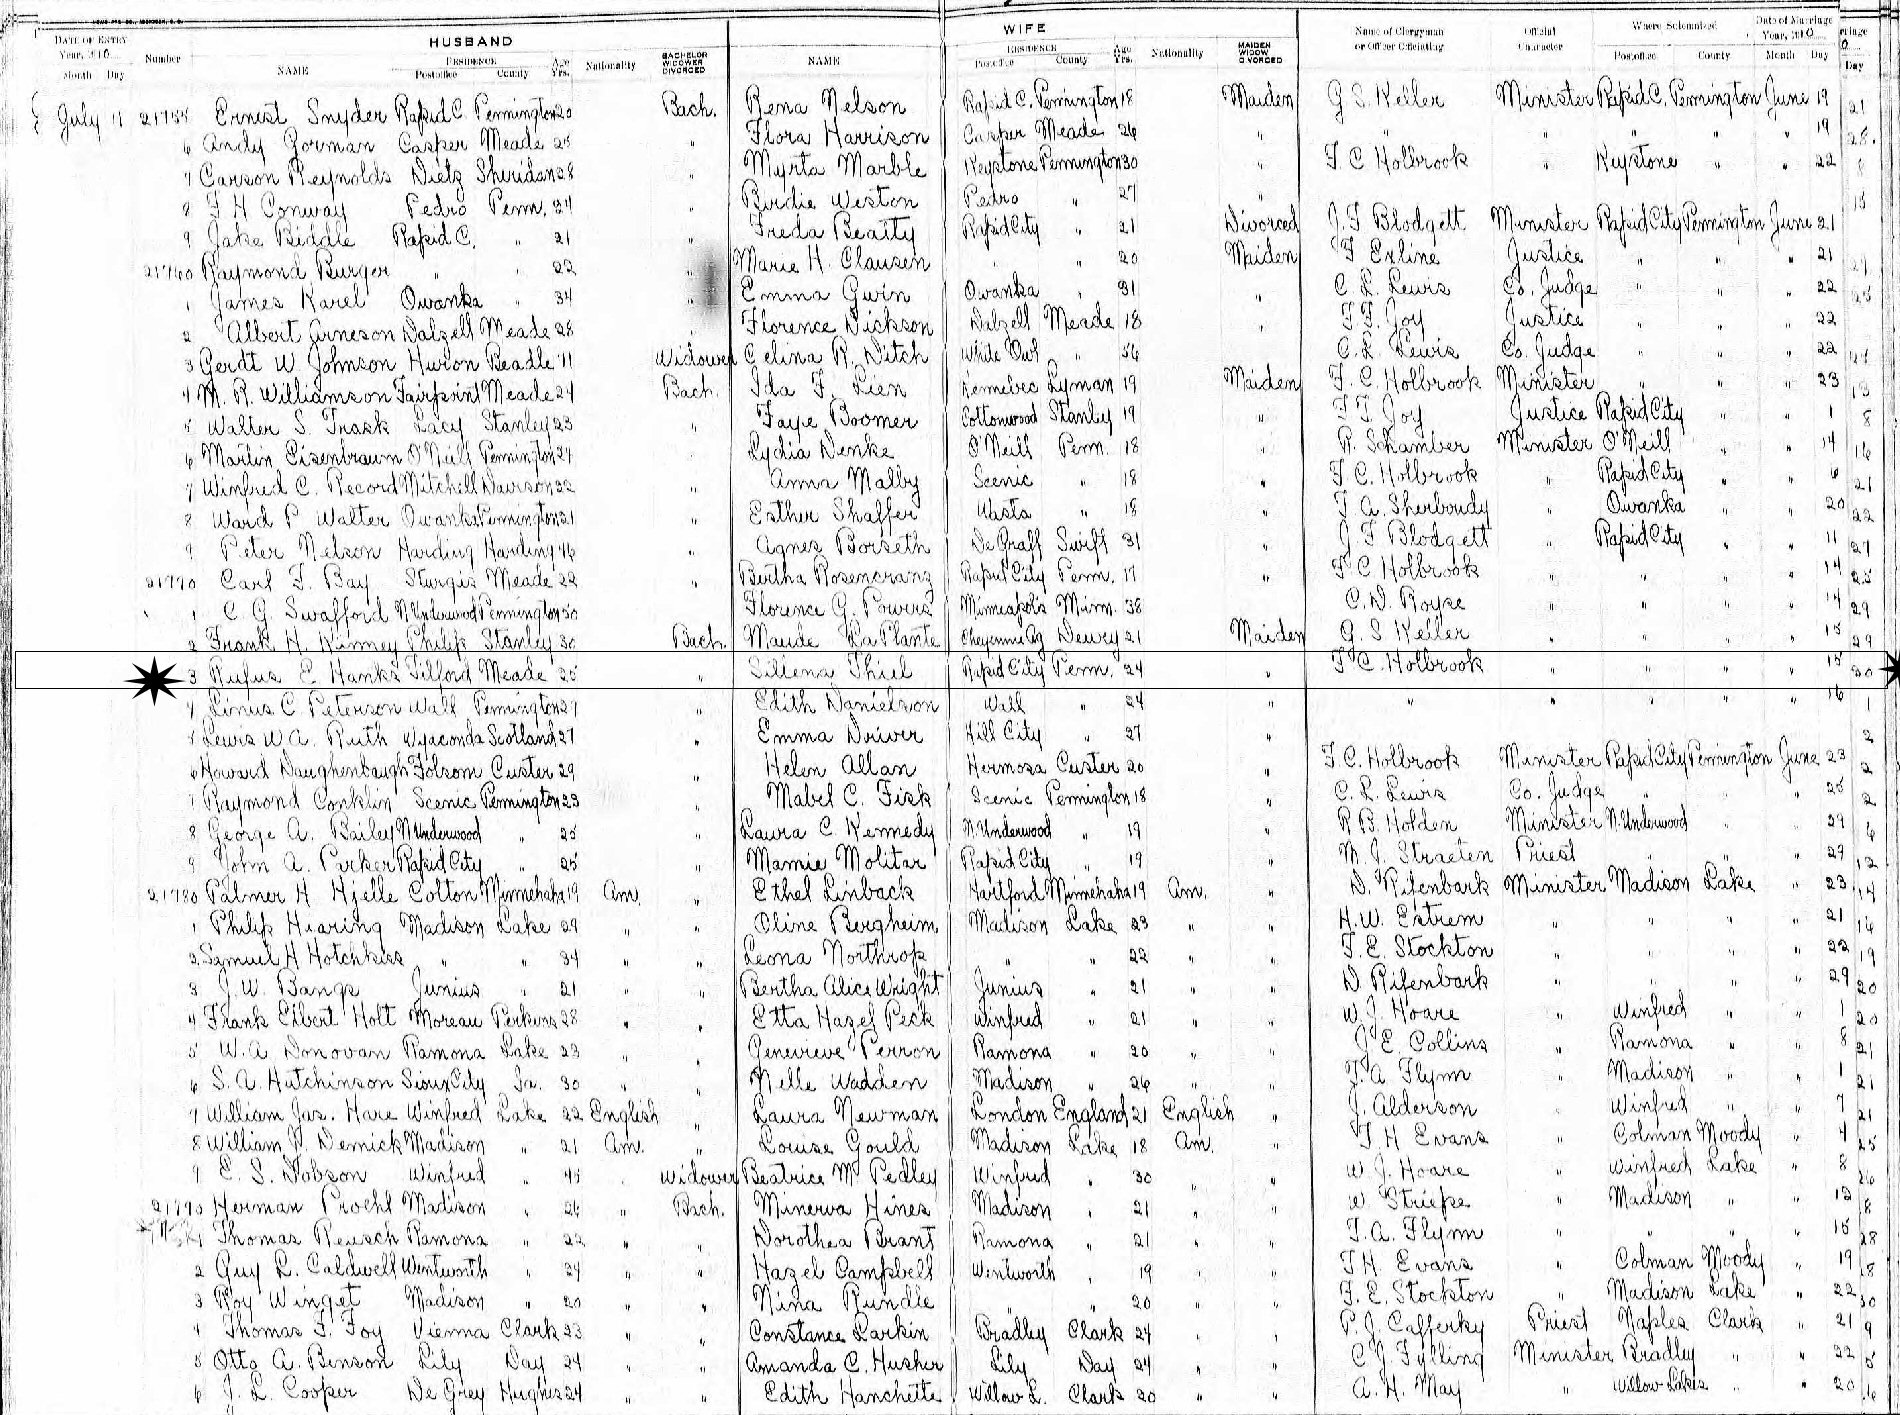 HUSBAND WIFE
DATE OF ENTRY Year, 1910 Month Day Number NAME RESIDENCE Postoffice County Age Yrs. Nationality BACHELOR WIDOWER DIVORCED NAME RESIDENCE Postoffice County Age Yrs. Nationality MAIDEN WIDOW DIVORCED Name of Clergyman or Officer Officiating Official Character Where Solemnized Postoffice County Date of Marriage Year, 1910 Month Day
July 11 Ernest Snyder Rapid C. Pennington 20 Bach. Rena Nelson Rapid C. Pennington 18 Maiden G S. Keller Minister Rapid C. Pennington June 19 21
6 Andy Gorman Casper Meade 25 " Flora Harrison Casper Meade 26 " " " " " " 19 28
7 Carson Reynolds Dietz Sheridan 28 " Myrta Marble Keystone Pennington 30 " F C Holbrook " Keystone " " 22 8
8 F H Conway Pedro Penn. 24 " Birdie Weston Pedro " 27 "
9 Jake Biddle Rapid C. " 21 " Freda Beaity Rapid City " 21 Divorced J. F Blodgett Minister Rapid City Pennington June 21
21760 Raymond Burger " " 22 " Marie H. Clausen " " 20 Maiden F Exline Justice " " " 21
1 James Karel Owanka " 34 " Emma Gwin Owanka " 31 " C. L. Lewis Co. Judge " " " 22
2 Albert Arneson Dalzell Meade 28 " Florence Dickson Dalzell Meade 18 " F. F. Joy Justice " " " 22
3 Gerdt W Johnson Huron Beadle 71 Widower Celina R. Ditch White Owl " 56 C. L. Lewis Co. Judge " " " 22
4 M. R. Williamson Fairpoint Meade 24 Bach. Ida F. Lien Kennebec Lyman 19 Maiden F. C. Holbrook Minister " " " 23 13
5 Walter S. Trask Lacy Stanley 23 " Faye Boomer Cottonwood Stanley 19 " F F Joy Justice Rapid City " " 1 8
6 Martin Eisenbraun O'Neill Pennington 24 " Lydia Denke O'Neill Penn. 18 " R. Schamber Minister O'Neill " " 14 16
7 Winfred C. Record Mitchell Davison 32 " Anna Malby Scenic " 18 " F C. Holbrook " Rapid City " " 6 21
8 Ward P Walter Owanka Pennington 21 " Esther Shaffer Wasta " 18 " F A. Sherbondy " Owanka " " 20 22
9 Peter Nelson Harding Harding 46 " Agnes Borseth De Graff Swift 31 " J F Blodgett " Rapid City " " 11 27
21770 Carl F. Bay Sturgis Meade 22 " Bertha Rosencranz Rapid City Penn. 17 " F C Holbrook " " " " 14 25
1 C. G. Swafford N Underwood Pennington 50 Florence G. Powers Minneapolis Minn. 38 C. D. Royse " " " " 14 29
2 Frank H. Kinney Philip Stanley 30 Bach. Maude La Plante Cheyenne Ag Dewey 21 Maiden G. S Keller " " " " 15 29
3 Rufus E Hanks Tilford Meade 25 " Sillena Thiel Rapid City Penn. 24 " F C. Holbrook " " " " 15 30
4 Linus C. Peterson Wall Pennington 27 " Edith Danielson Wall " 24 " " " " " " 16 1
5 Lewis W A. Ruth Wyaconda Scotland 27 " Emma Driver Hill City " 27 " 2
6 Howard Daughenbaugh Folsom Custer 29 " Helen Allan Hermosa Custer 20 " F. C. Holbrook Minister Rapid City Pennington June 23 2
7 Raymond Conklin Scenic Pennington 23 " Mabel C. Fisk Scenic Pennington 18 " C. L. Lewis Co. Judge " " " 25 2
8 George A. Bailey N Underwood " 25 " Laura C Kennedy N. Underwood " 19 " R B. Holden Minister N. Underwood " " 29 6
9 John A. Parker Rapid City " 25 " Mamie Molitar Rapid City " 19 " M. J. Straeten Priest " " " 29 12
21780 Palmer H Hjelle Colton Minnehaha 19 Am. " Ethel Linback Hartford Minnehaha 19 Am. " D. Rifenbark Minister Madison Lake " 23 14
1 Philip Hearing Madison Lake 29 " " Oline Bergheim Madison Lake 23 " " H. W. Extrem " " " " 21 16
2 Samuel H Hotchkiss " " 34 " " Leona Northrop " " 22 " " F. E. Stockton " " " " 22 19
3 J. W. Bangs Junius " 21 " " Bertha Alice Wright Junius " 21 " " D Rifenbark " " " " 29 20
4 Frank Elbert Holt Moreau Perkins 28 " " Etta Hazel Peck Winfred " 21 " " W. J. Hoare " Winfred " " 1 20
5 W. A Donovan Ramona Lake 23 " " Genevieve Perron Ramona " 20 " " J E. Collins " Ramona " " 8 21
6 S. A. Hutchinson Sioux City Ia. 30 " " Nelle Wadden Madison " 26 " " F. A Flynn " Madison " " 1 21
7 William Jas. Hare Winfred Lake 22 English " Laura Newman London England 21 English " J. Alderson " Winfred " " 7 21
8 William P. Demick Madison " 21 Am. " Louise Gould Madison Lake 18 Am. " F H Evans " Colman Moody " 4 25
9 E. S. Dobson Winfred " 45 " Widower Beatrice M. Pedley Winfred " 30 " " W J. Hoare " Winfred Lake " 8 26
21790 Herman Proehl Madison " 26 " Bach. Minerva Hines Madison " 21 " " W Striepe " Madison " " 12 8
1 Thomas Reusch Ramona " 22 " " Dorothea Brant Ramona " 21 " " F. A. Flynn " " " " 15 28
2 Guy L. Caldwell Wentworth " 24 " " Hazel Campbell Wentworth " 19 " " F H. Evans " Colman Moody " 19 18
3 Roy Winget Madison " 20 " " Nina Rundle " " 20 " " F. E. Stockton " Madison Lake " 22 30
4 Thomas F. Foy Vienna Clark 23 " " Constance Larkin Bradley Clark 24 " " P. J. Cafferky Priest Naples Clark " 21 9
5 Otto A. Benson Lily Day 24 " " Amanda C. Husher Lily Day 24 " " C J. Fylling Minister Bradley " " 22 5
6 J. L. Cooper De Grey Hughes 24 " " Edith Hanchette Willow L. Clark 20 " " A. H. May " Willow Lakes " " 20 16